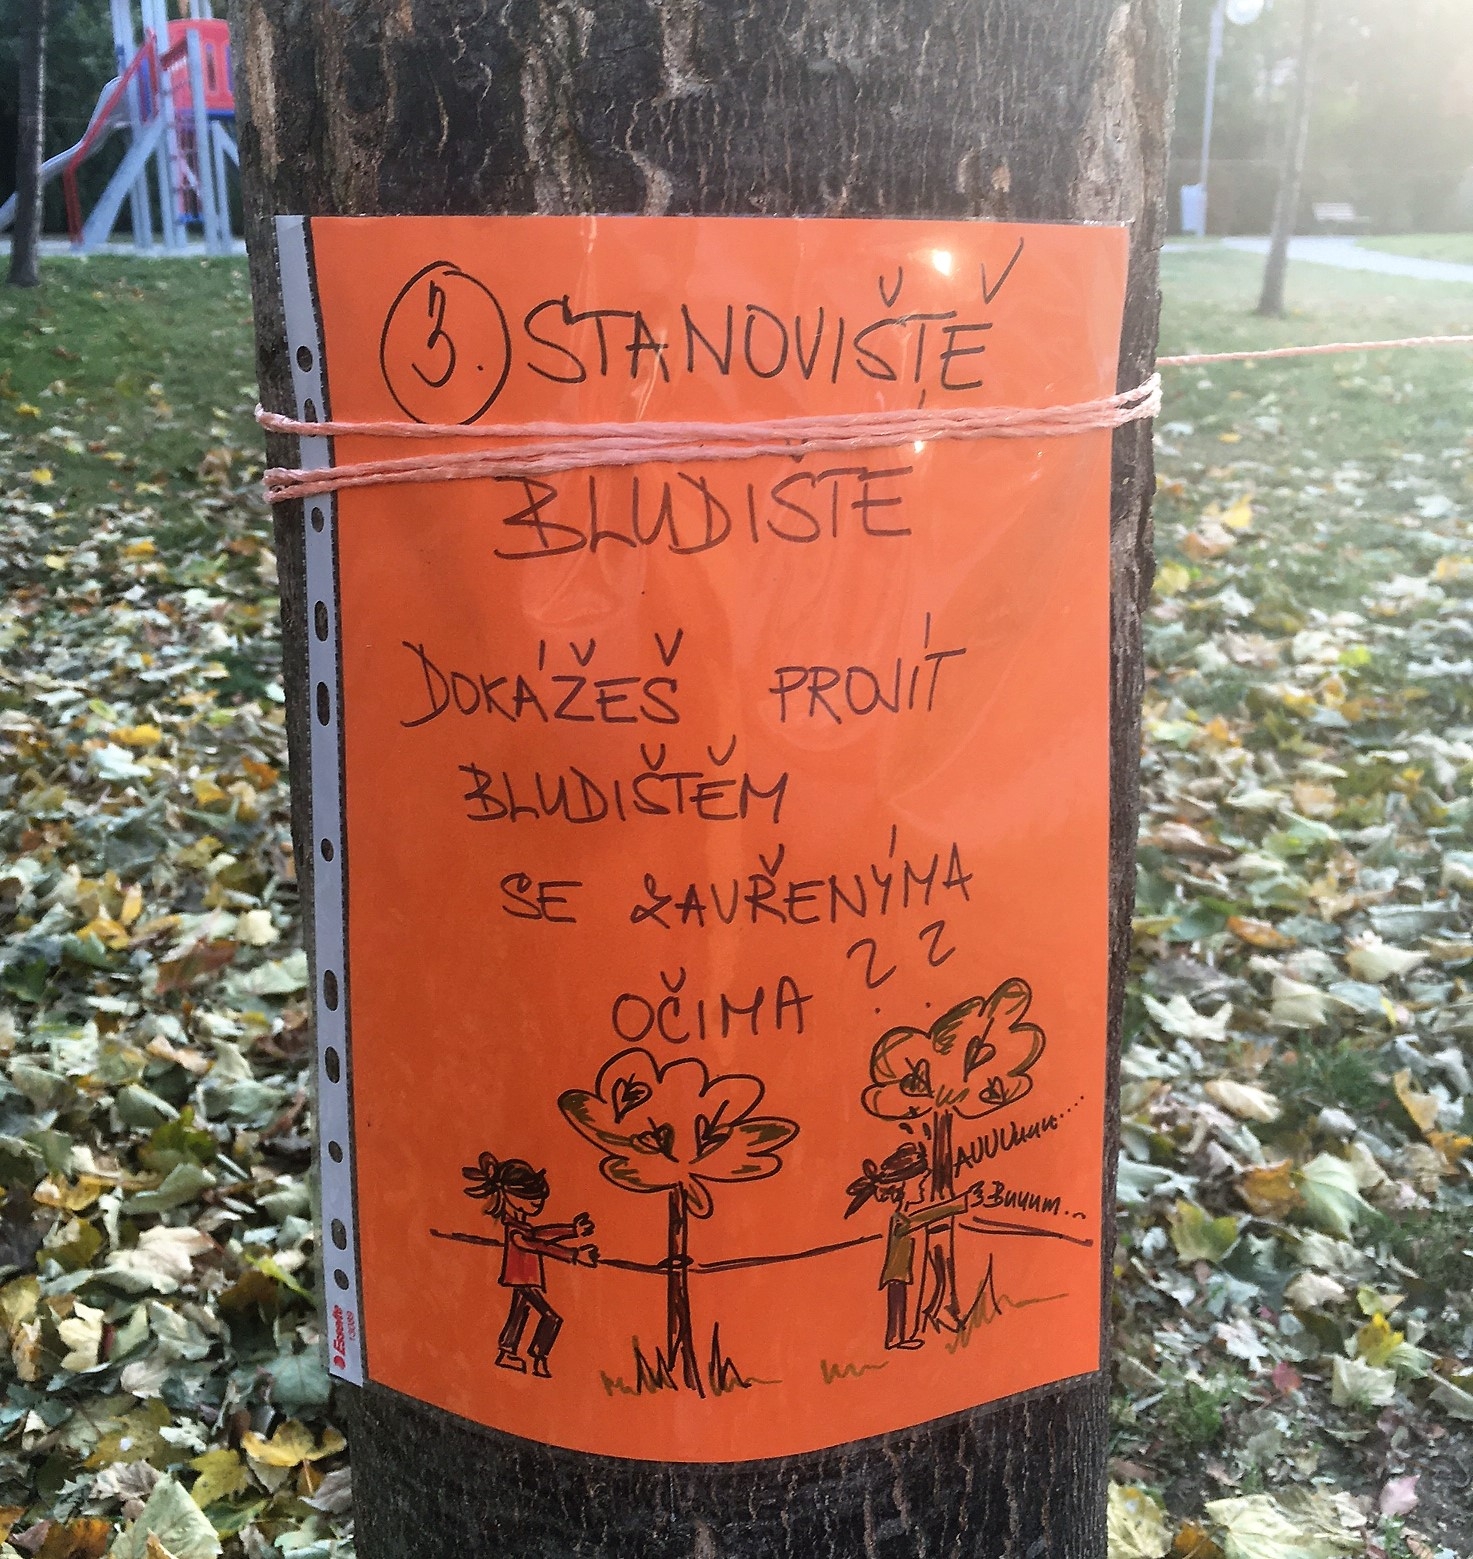 3. STANOVIŠTĚ
BLUDIŠTE
DOKÁŽEŠ PROJÍT
BLUDIŠTĚM
SE ZAVŘENÝMA
OČIMA ??
AUUUuuu.....
BUUUM...
Esselte
13089